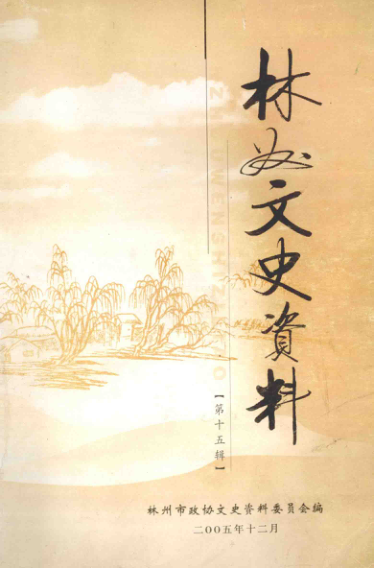 林州文史資料
【第十五辑】
林州市政协文史资料委员会编
二〇〇五年十二月